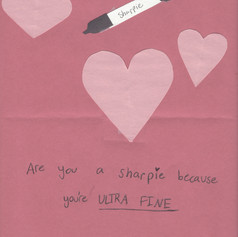 Sharpie
Are you a sharpie because
you're ULTRA FINE